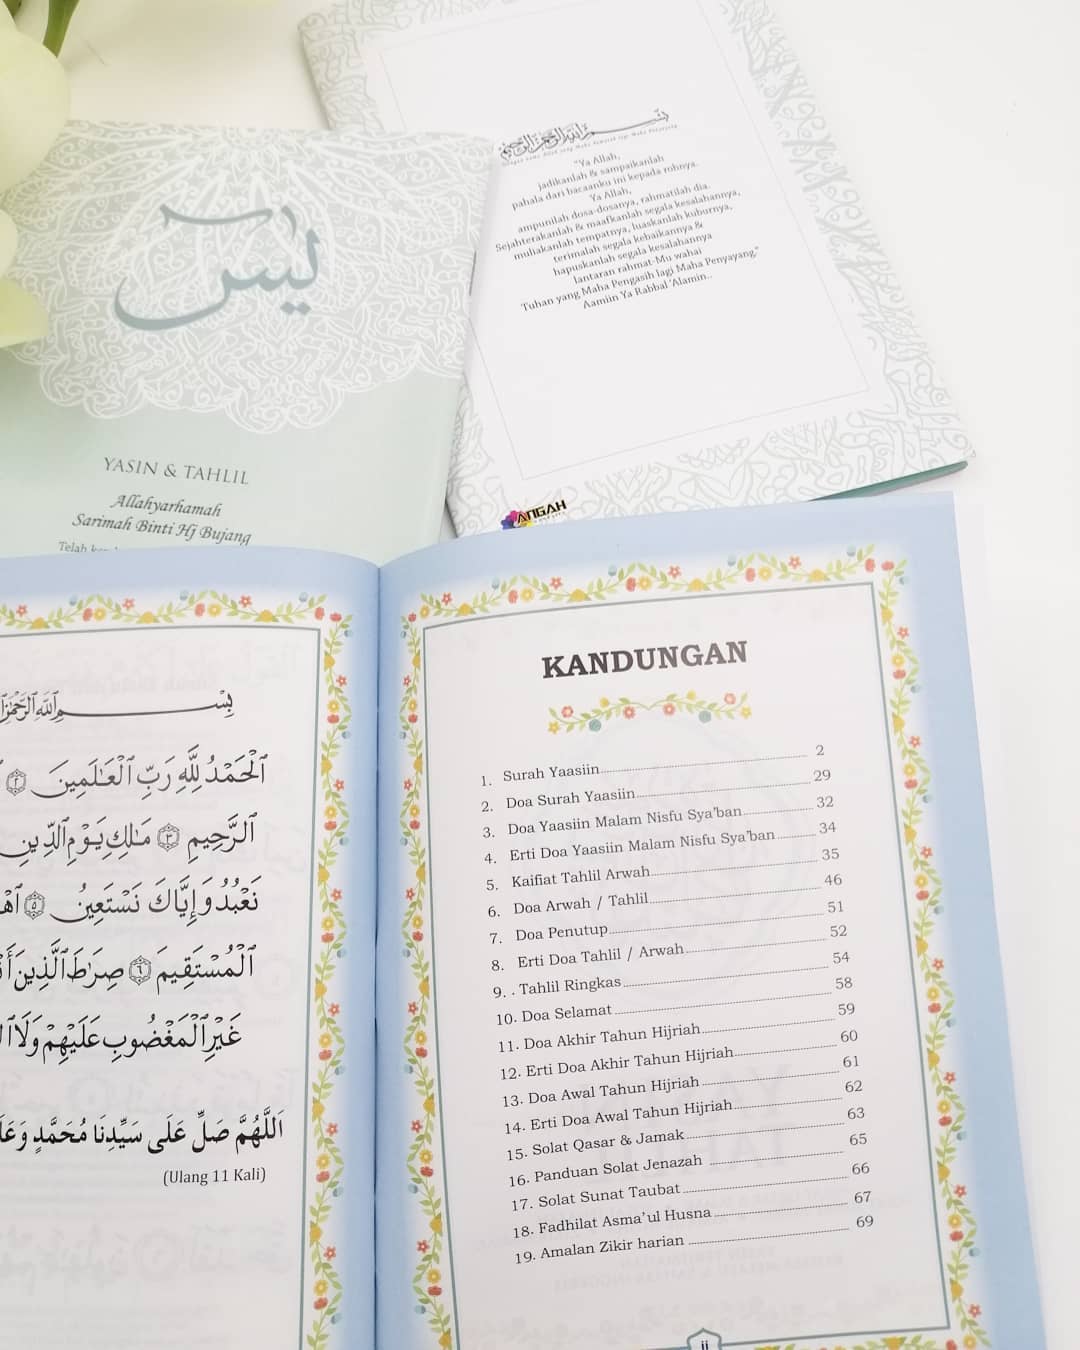 بِسْمِ ٱللَّهِ
"Ya Allah,
jadikanlah & sampaikanlah
pahala dari bacaanku ini kepada rohnya.
Ya Allah,
ampunilah dosa-dosanya, rahmatilah dia.
Sejahterakanlah & maafkanlah segala kesalahannya,
muliakanlah tempatnya, luaskanlah kuburnya,
terimalah segala kebaikannya &
hapuskanlah segala kesalahannya
lantaran rahmat-Mu wahai
Tuhan yang Maha Pengasih lagi Maha Penyayang."
Aamiin Ya Rabbal 'Alamin..
ANGAH
يس
YASIN & TAHLIL
Allahyarhamah
Sarimah Binti Hj Bujang
Telah
بِسْمِ ٱللَّهِ
ٱلْحَمْدُ لِلَّهِ رَبِّ ٱلْعَـٰلَمِينَ ٢
ٱلرَّحِيمِ ٣ مَـٰلِكِ يَوْمِ ٱلدِّينِ
نَعْبُدُ وَإِيَّاكَ نَسْتَعِينُ ٥
ٱلْمُسْتَقِيمَ ٦ صِرَٰطَ ٱلَّذِينَ
غَيْرِ ٱلْمَغْضُوبِ عَلَيْهِمْ وَلَا
اَللَّهُمَّ صَلِّ عَلَى سَيِّدِنَا مُحَمَّدٍ
(Ulang 11 Kali)
KANDUNGAN
1. Surah Yaasiin 2
2. Doa Surah Yaasiin 29
3. Doa Yaasiin Malam Nisfu Sya'ban 32
4. Erti Doa Yaasiin Malam Nisfu Sya'ban 34
5. Kaifiat Tahlil Arwah 35
6. Doa Arwah / Tahlil 46
7. Doa Penutup 51
8. Erti Doa Tahlil / Arwah 52
9. . Tahlil Ringkas 54
10. Doa Selamat 58
11. Doa Akhir Tahun Hijriah 59
12. Erti Doa Akhir Tahun Hijriah 60
13. Doa Awal Tahun Hijriah 61
14. Erti Doa Awal Tahun Hijriah 62
15. Solat Qasar & Jamak 63
16. Panduan Solat Jenazah 65
17. Solat Sunat Taubat 66
18. Fadhilat Asma'ul Husna 67
19. Amalan Zikir harian 69
ii